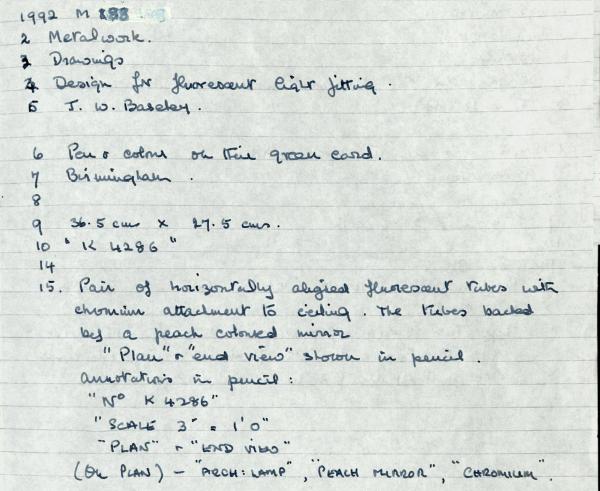 1992 M 188
2 Metalwork.
3 Drawings
4 Design for fluorescent light fitting.
5 J. W. Baseley.
6 Pen & colour on thin green card.
7 Birmingham.
8
9 36.5 cms x 27.5 cms.
10 "K 4286"
14
15. Pair of horizontally aligned fluorescent tubes with
chromium attachment to ceiling. The tubes backed
by a peach coloured mirror
"Plan" & "end view" shown in pencil.
annotations in pencil:
"No K 4286"
"SCALE 3" = 1'0"
"PLAN" & "END VIEW"
(On PLAN) - "ARCH: LAMP", "PEACH MIRROR", "CHROMIUM".